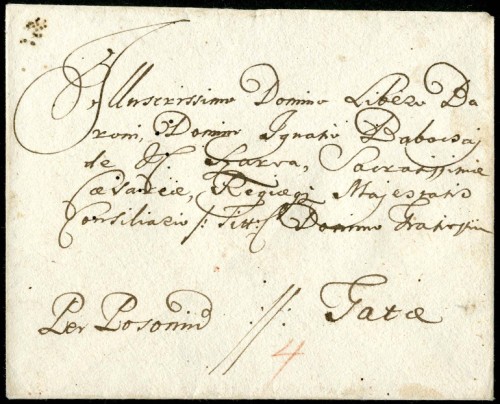 Illustrissimo Domino Libero Ba
roni, Domino Ignatio Babocsaj
de
Sacratissimae
Caesareae, Regiaeq Majestatis
Consiliario /: Titt: Domino
Per Posonium //: Tatae
4